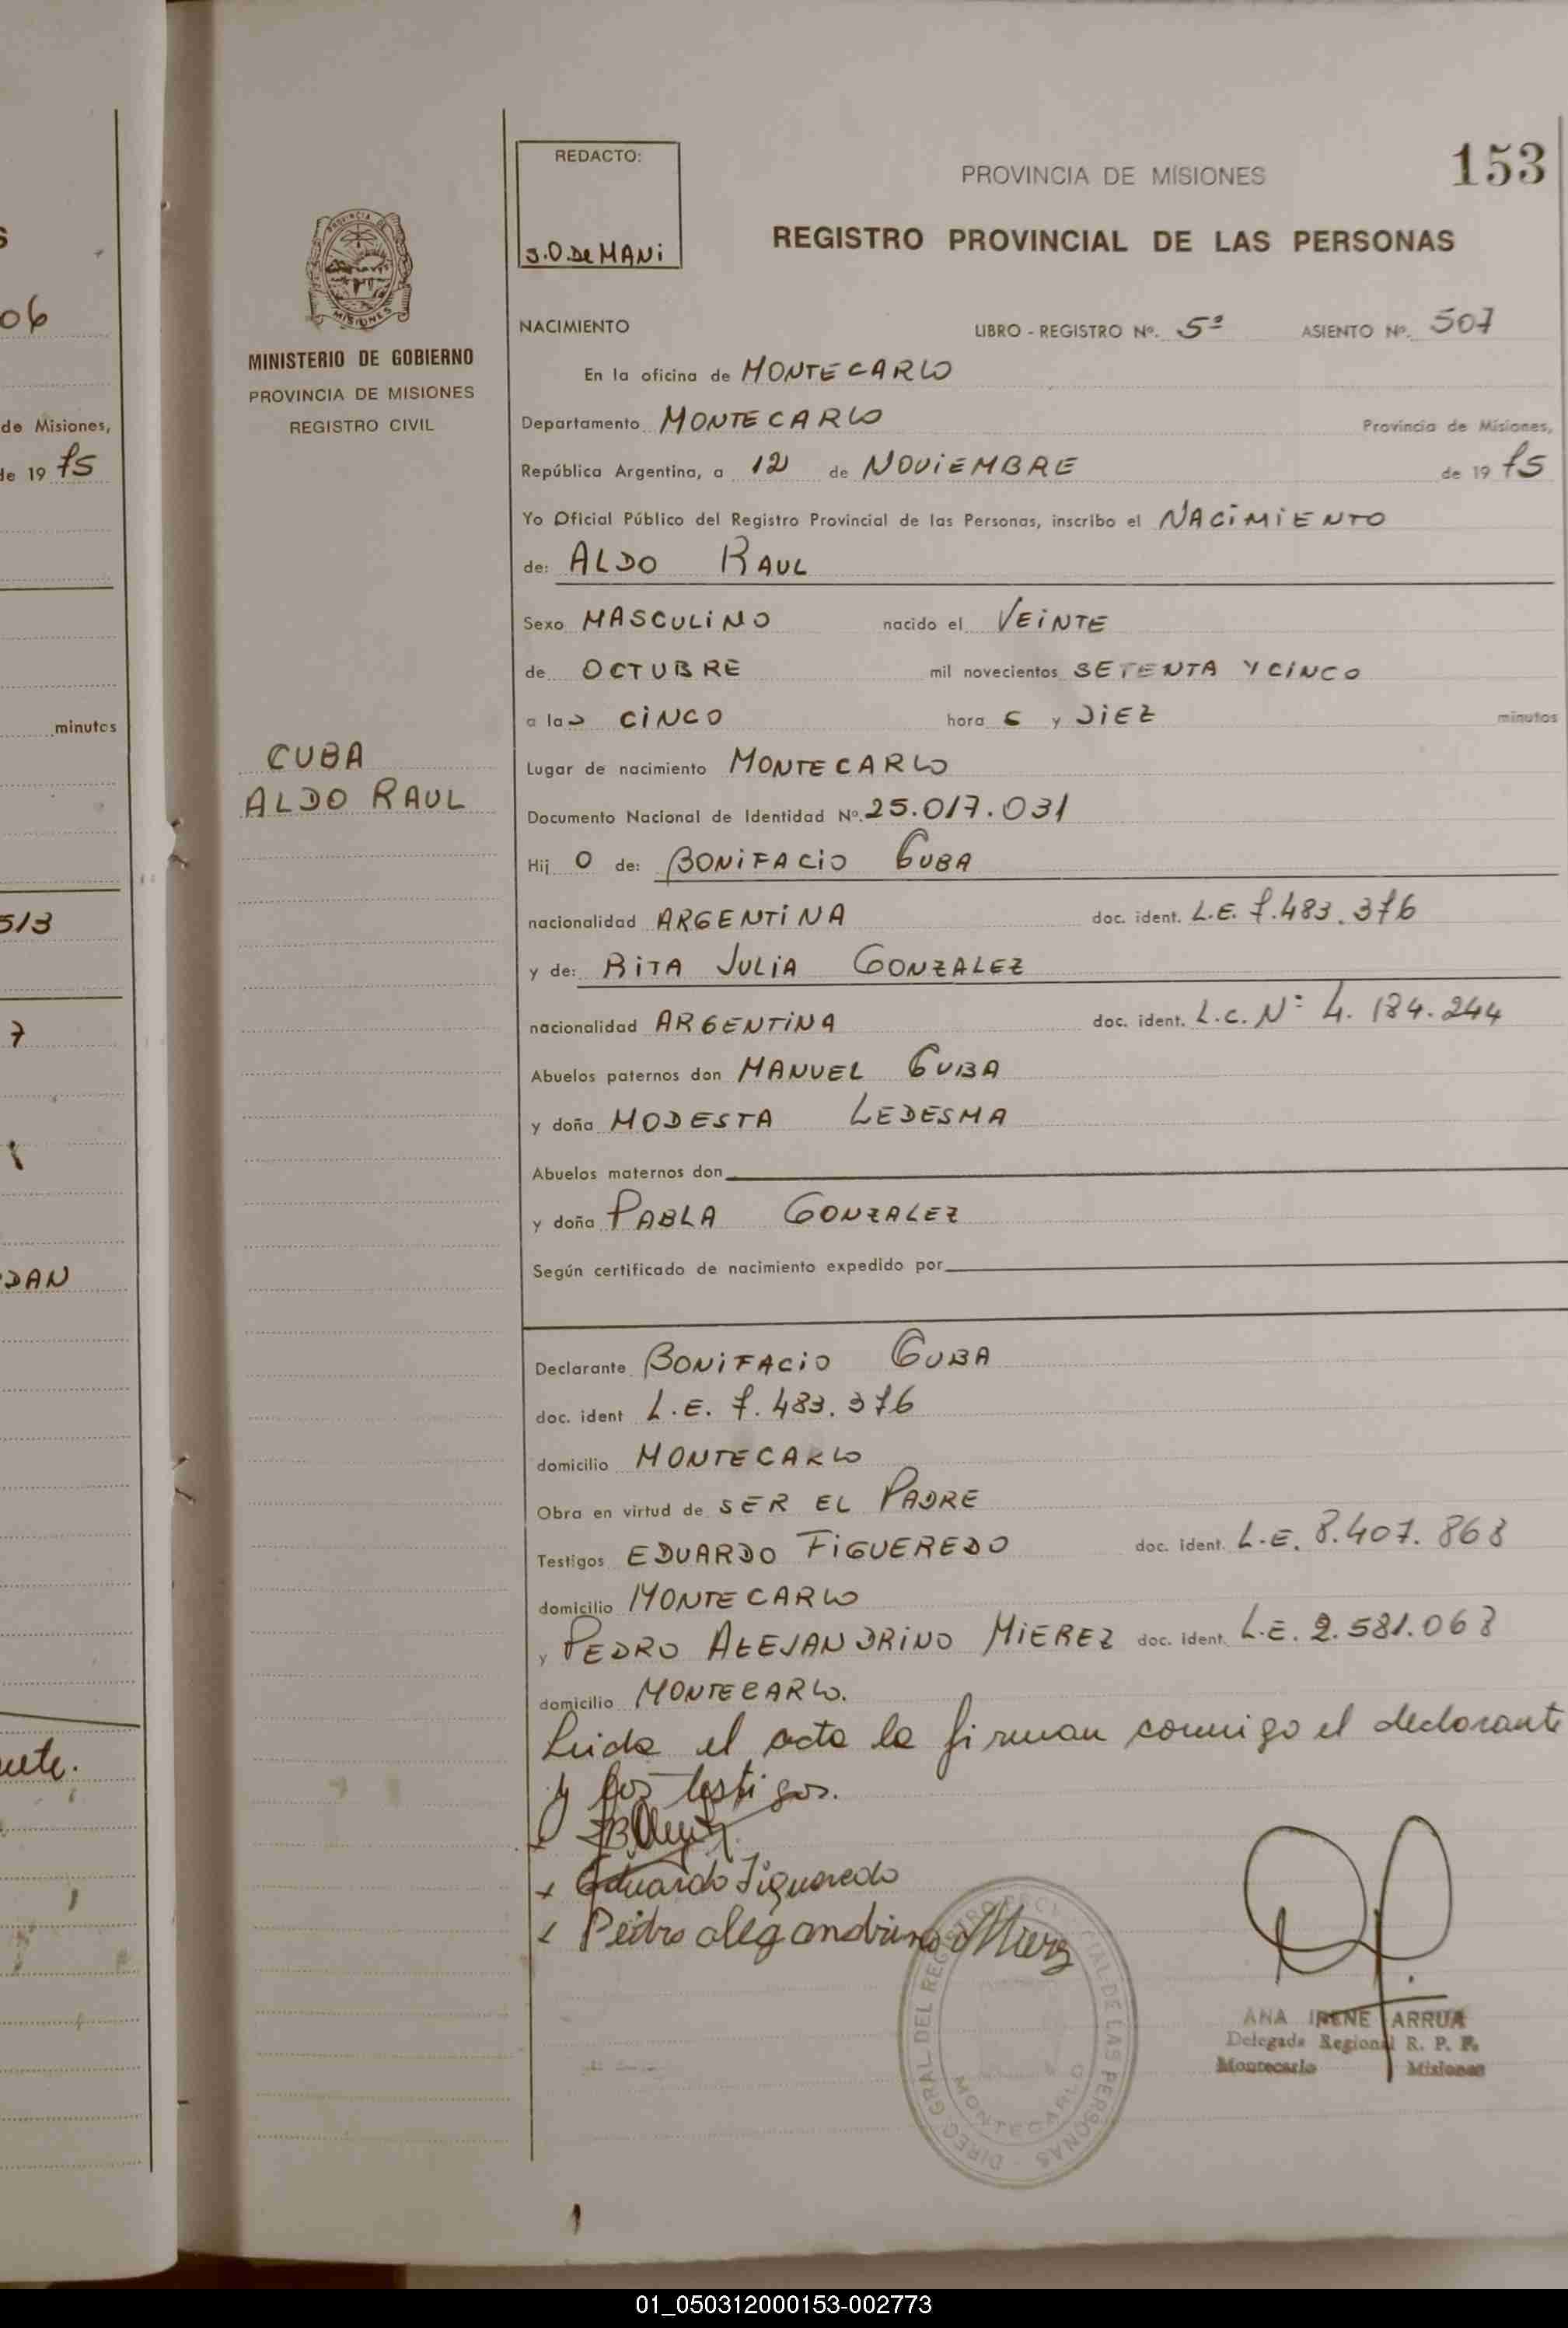 06
de Misiones,
de 19 75
minutos
513
7
DAN
153
REDACTO:
J.O. De MANi
PROVINCIA DE MISIONES
REGISTRO PROVINCIAL DE LAS PERSONAS
PROVINCIA DE
MISIONES
MINISTERIO DE GOBIERNO
PROVINCIA DE MISIONES
REGISTRO CIVIL
CUBA
ALDO RAUL
NACIMIENTO LIBRO - REGISTRO Nº. 5º ASIENTO Nº. 507
En la oficina de MONTECARLO
Departamento MONTECARLO Provincia de Misiones,
República Argentina, a 12 de NOViEMBRE de 19 75
Yo Oficial Público del Registro Provincial de las Personas, inscribo el NACiMiENTO
de: ALDO RAUL
Sexo MASCULiNO nacido el VEiNTE
de OCTUBRE mil novecientos SETENTA Y CiNCO
a las CiNCO hora s y DiEZ minutos
Lugar de nacimiento MONTECARLO
Documento Nacional de Identidad Nº. 25.017.031
Hij O de: BONiFACiO CUBA
nacionalidad ARGENTiNA doc. ident. L.E. 7.483.376
y de: RiTA JULiA GONZALEZ
nacionalidad ARGENTiNA doc. ident. L.C. Nº 4.184.244
Abuelos paternos don MANUEL CUBA
y doña MODESTA LEDESMA
Abuelos maternos don
y doña PABLA GONZALEZ
Según certificado de nacimiento expedido por
Declarante BONiFACiO CUBA
doc. ident L.E. 7.483.376
domicilio MONTECARLO
Obra en virtud de SER EL PADRE
Testigos EDUARDO FiGUEREDO doc. ident. L.E. 8.407.868
domicilio MONTECARLO
y PEDRO ALEJANDRiNO MiEREZ doc. ident. L.E. 2.581.068
domicilio MONTECARLO.
Leida el acta la firman conmigo el declarante
y los testigos.
x Eduardo Figueredo
x Pedro alegandrino Mierz
DIREC. GRAL DEL REGISTRO PROVINCIAL DE LAS PERSONAS
MONTECARLO
ANA IRENE ARRUA
Delegada Regional R. P. P.
Montecarlo Misiones
01_050312000153-002773